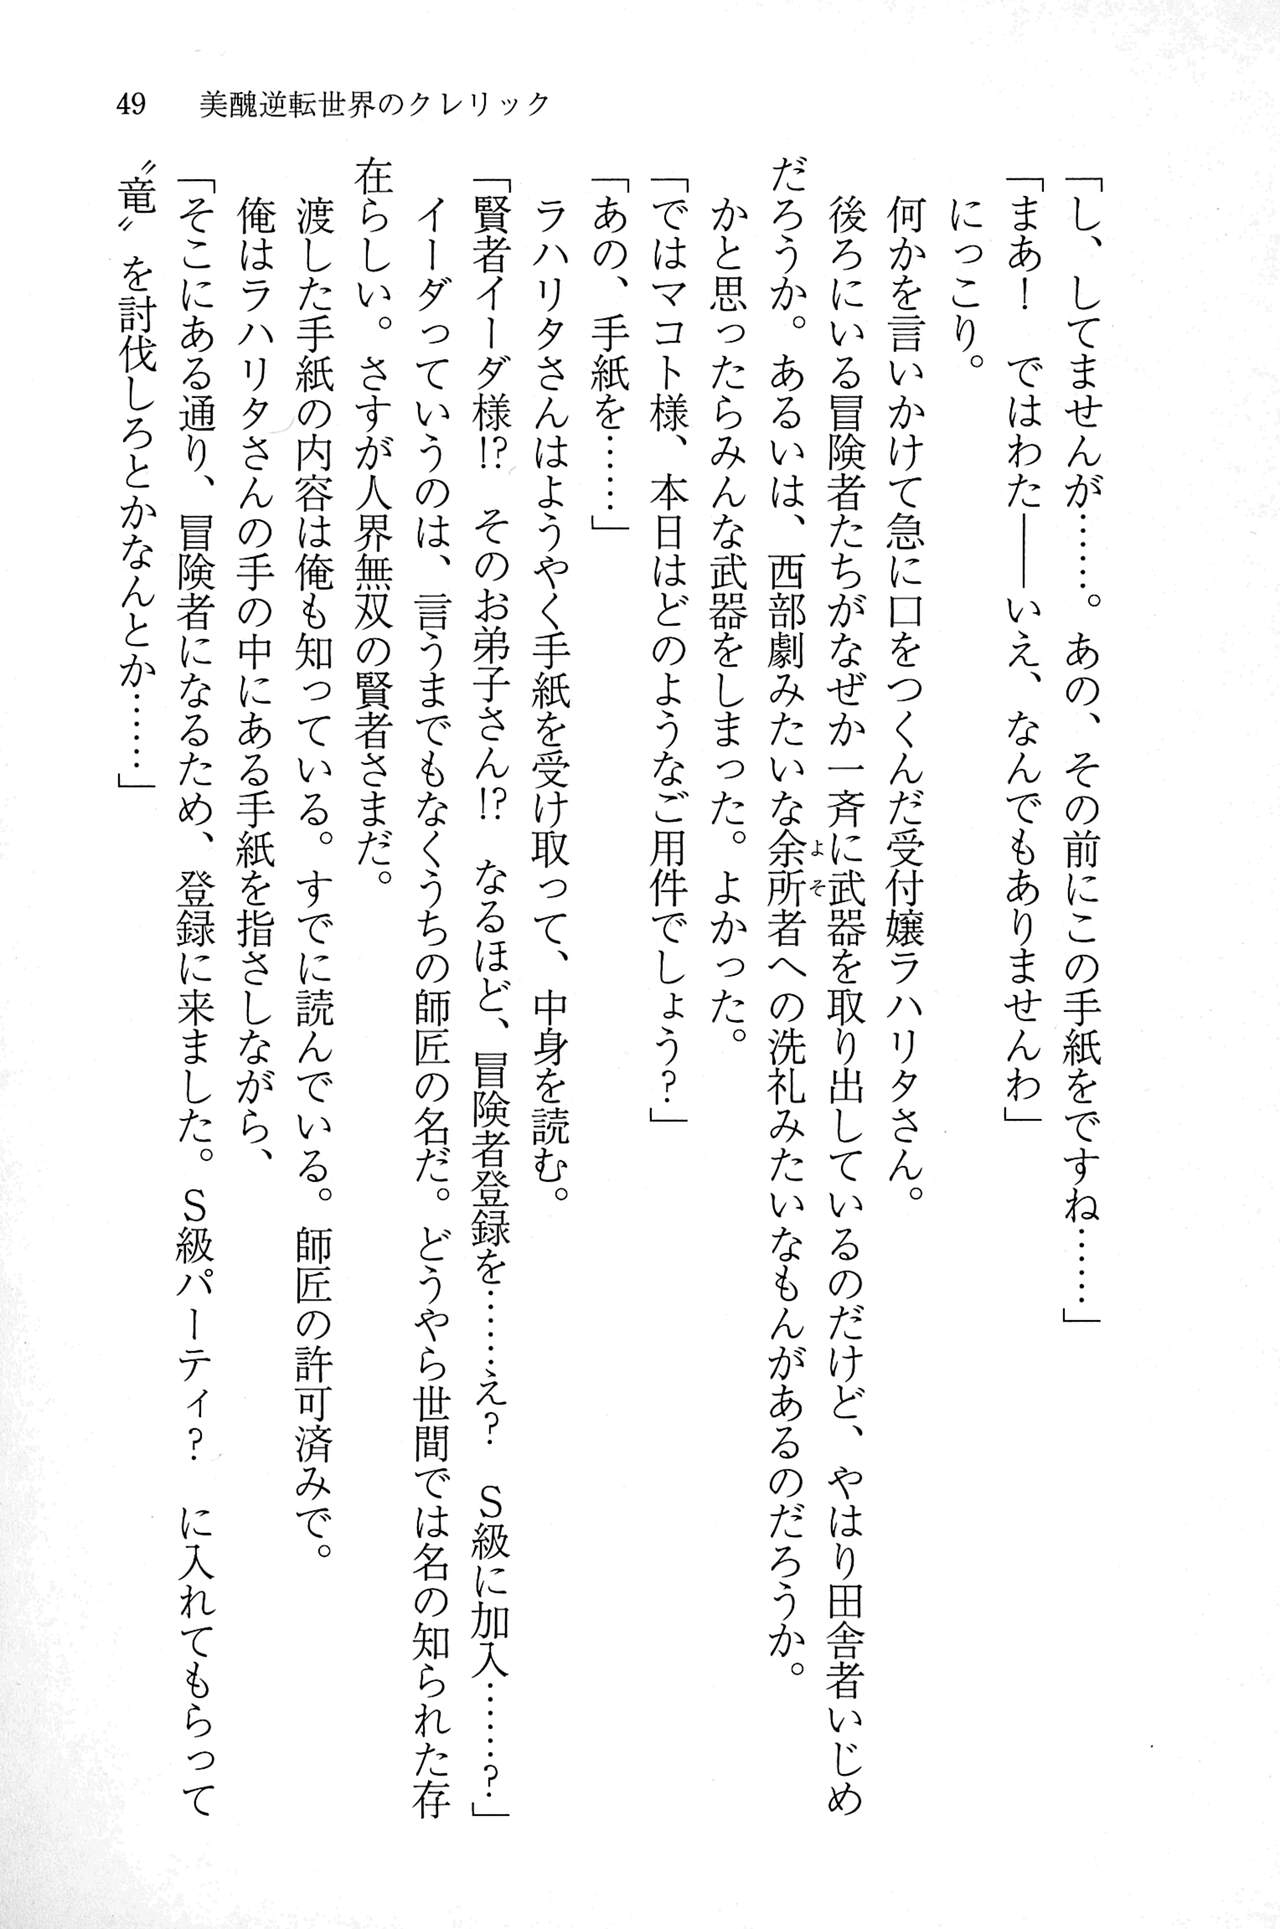 49　美醜逆転世界のクレリック
「し、してませんが……。あの、その前にこの手紙をですね……」
「まあ！　ではわた――いえ、なんでもありませんわ」
にっこり。
何かを言いかけて急に口をつくんだ受付嬢ラハリタさん。
後ろにいる冒険者たちがなぜか一斉に武器を取り出しているのだけど、やはり田舎者いじめ
だろうか。あるいは、西部劇みたいな余所者への洗礼みたいなもんがあるのだろうか。
よそ
かと思ったらみんな武器をしまった。よかった。
「ではマコト様、本日はどのようなご用件でしょう？」
「あの、手紙を……」
ラハリタさんはようやく手紙を受け取って、中身を読む。
「賢者イーダ様!?　そのお弟子さん!?　なるほど、冒険者登録を……え？　Ｓ級に加入……？」
イーダっていうのは、言うまでもなくうちの師匠の名だ。どうやら世間では名の知られた存
在らしい。さすが人界無双の賢者さまだ。
渡した手紙の内容は俺も知っている。すでに読んでいる。師匠の許可済みで。
俺はラハリタさんの手の中にある手紙を指さしながら、
「そこにある通り、冒険者になるため、登録に来ました。Ｓ級パーティ？　に入れてもらって
〝竜〟を討伐しろとかなんとか……」